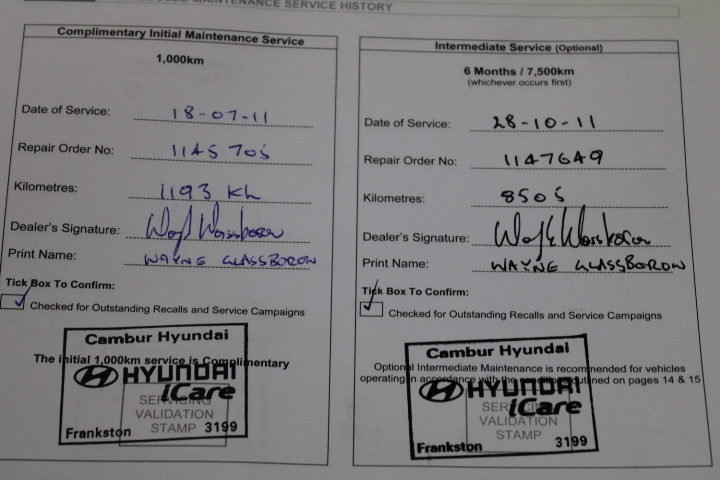 MAINTENANCE SERVICE HISTORY
Complimentary Initial Maintenance Service
1,000km
Date of Service: 18-07-11
Repair Order No: 1145705
Kilometres: 1193 KL
Dealer's Signature:
Print Name: WAYNE GLASSBOROW
Tick Box To Confirm:
Checked for Outstanding Recalls and Service Campaigns
The initial 1,000km service is Complimentary
Cambur Hyundai
HYUNDAI
iCare
SERVICING
VALIDATION
STAMP
Frankston 3199
Intermediate Service (Optional)
6 Months / 7,500km
(whichever occurs first)
Date of Service: 28-10-11
Repair Order No: 1147649
Kilometres: 8505
Dealer's Signature:
Print Name: WAYNE GLASSBOROW
Tick Box To Confirm:
Checked for Outstanding Recalls and Service Campaigns
Optional Intermediate Maintenance is recommended for vehicles
operating in accordance with the conditions outlined on pages 14 & 15
Cambur Hyundai
HYUNDAI
iCare
SERVICING
VALIDATION
STAMP
Frankston 3199